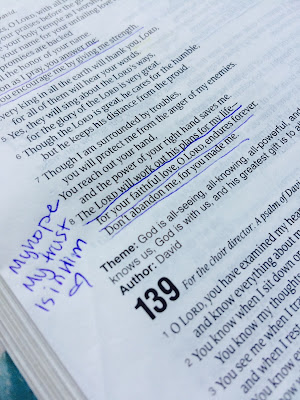 David.
as I pray, you answer me;
you encourage me by giving me strength.
very king in all the earth will thank you, LORD,
for all of them will hear your words.
5 Yes, they will sing about the LORD's ways,
for the glory of the LORD is very great.
6 Though the LORD is great, he cares for the humble,
but he keeps his distance from the proud.
7 Though I am surrounded by troubles,
you will protect me from the anger of my enemies.
You reach out your hand,
and the power of your right hand saves me.
8 The LORD will work out his plans for my life—
for your faithful love, O LORD, endures forever.
Don't abandon me, for you made me.
My hope
My trust
is in Him
Theme: God is all-seeing, all-knowing, all-powerful, and
knows us. God is with us, and his greatest gift is to
Author: David
139
For the choir director: A psalm of Da
1 O LORD, you have examined my hea
and know everything about m
2 You know when I sit down or
You know my though
3 You see me when I t
and when I re